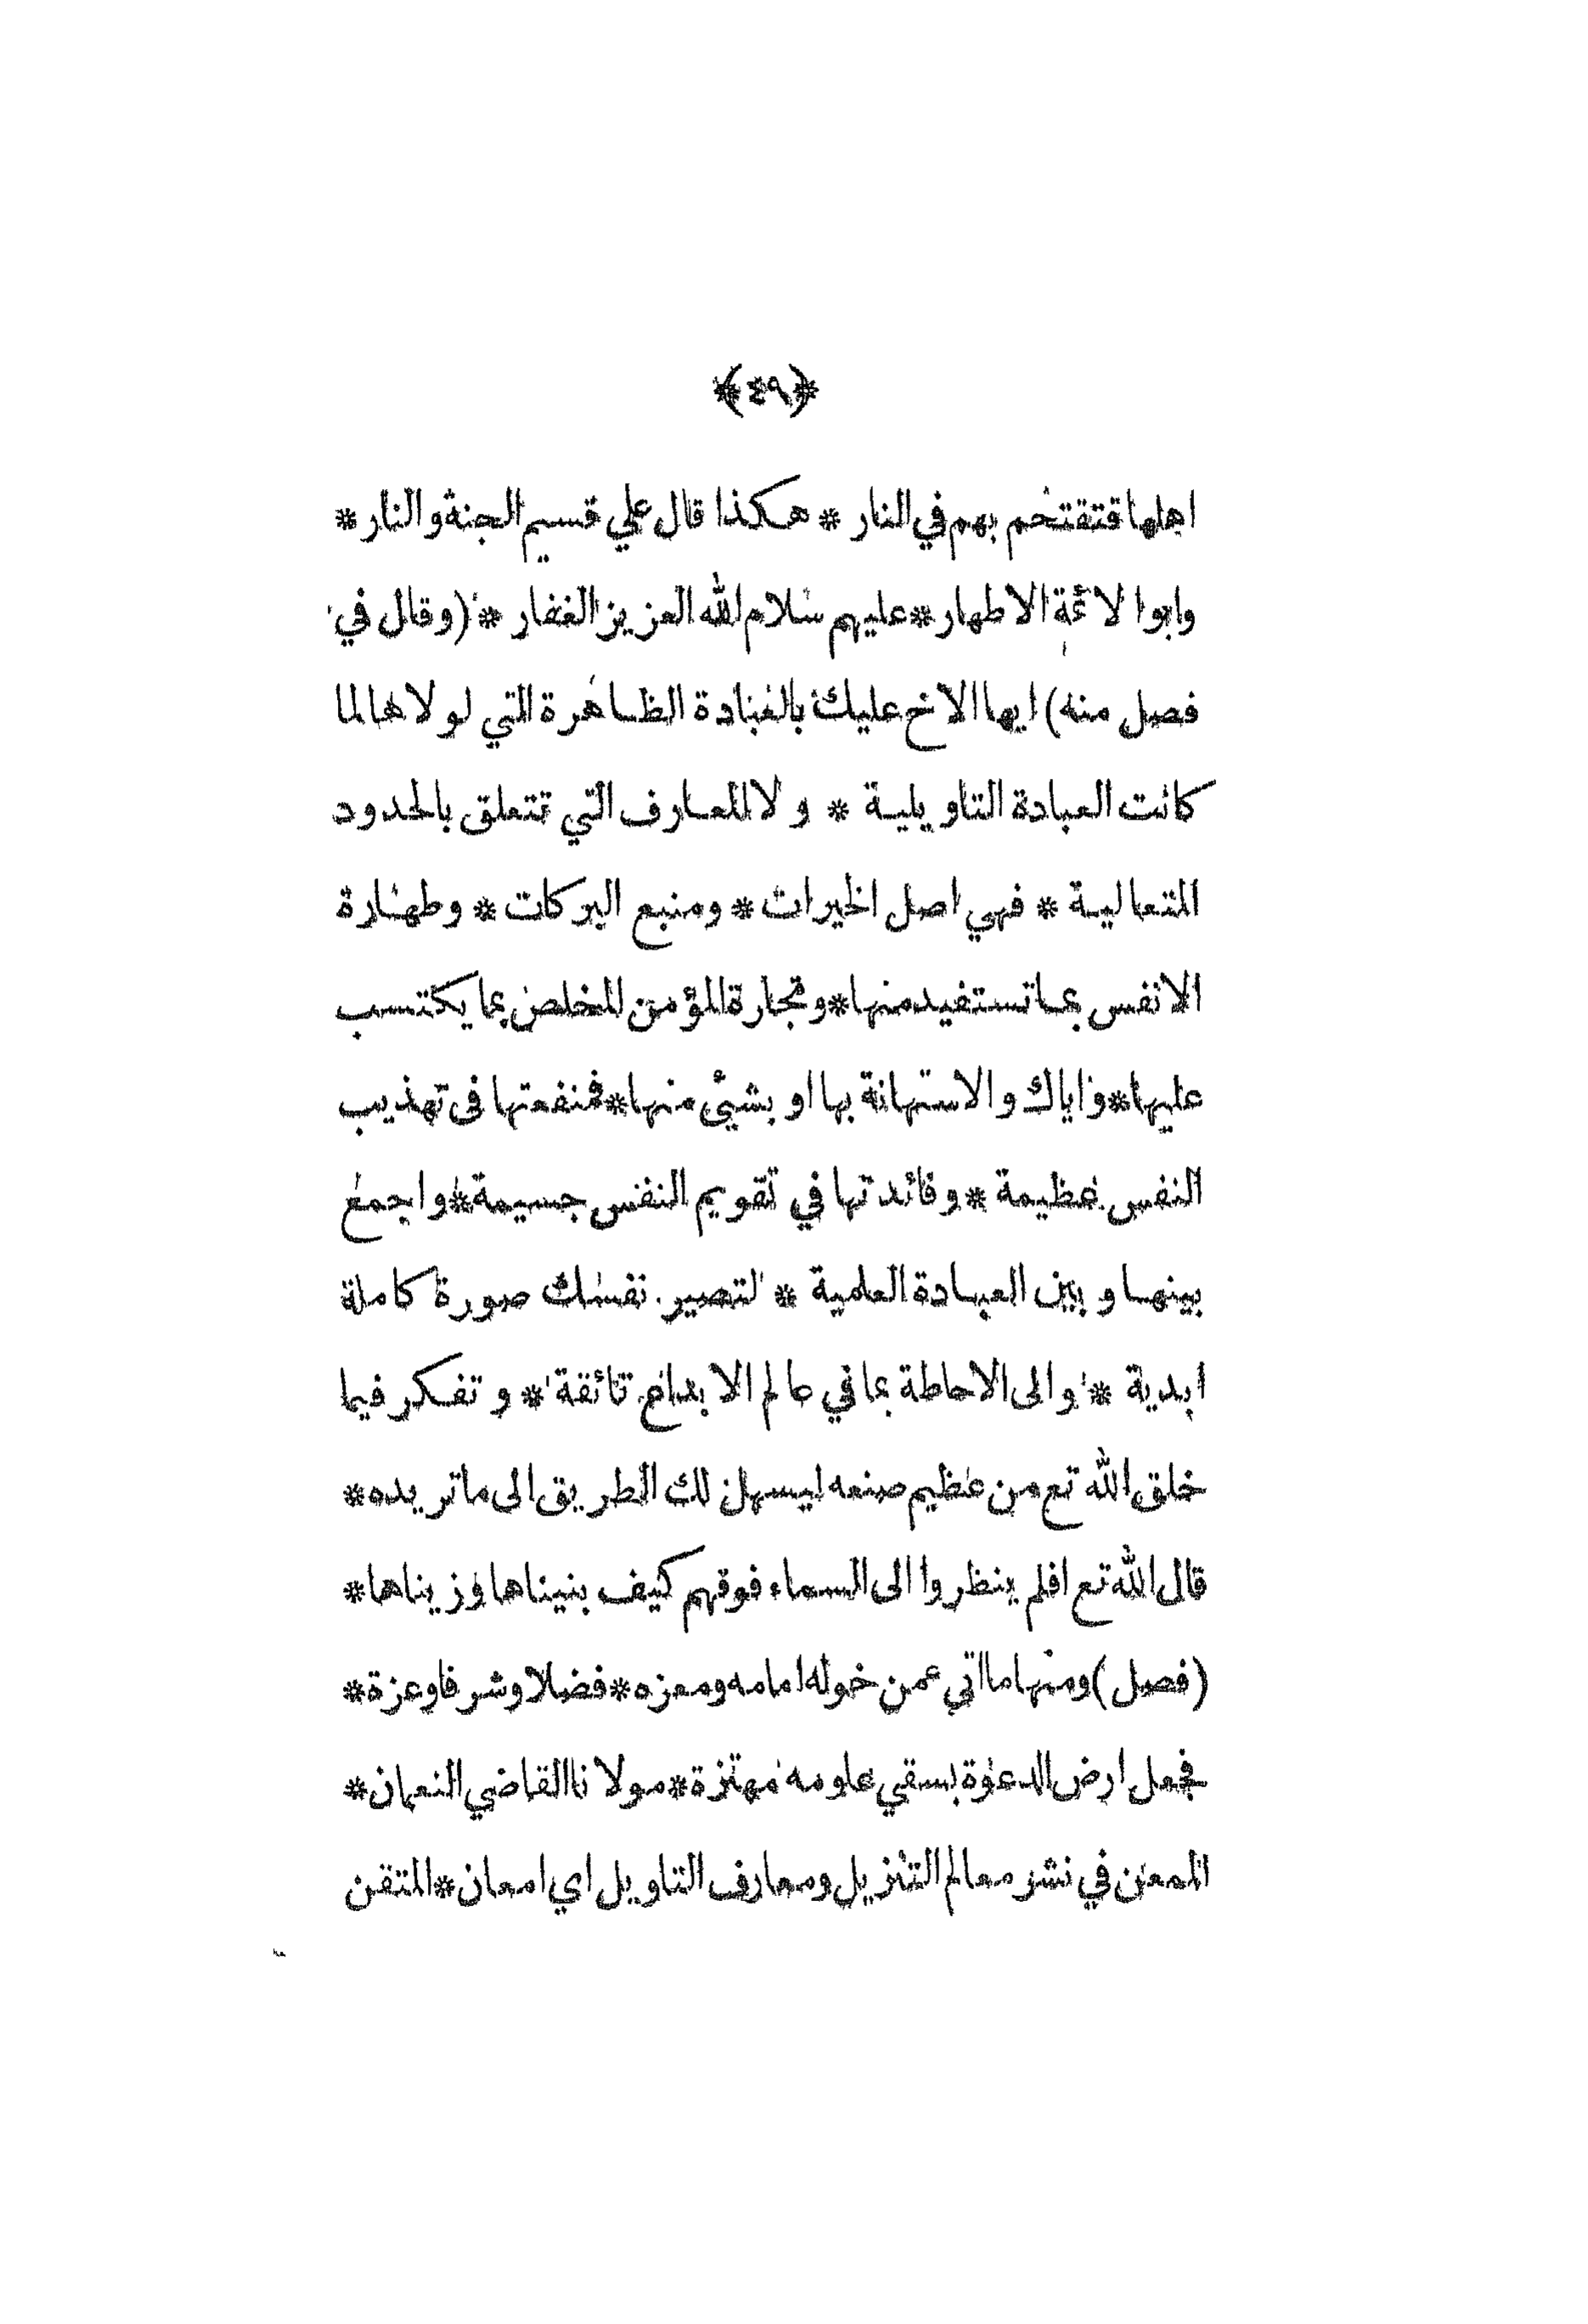 ﴿٤٩﴾
اهلها فتقتحم بهم في النار * هكذا قال علي قسيم الجنة والنار *
وابوا لائمة الاطهار * عليهم سلام الله العزيز الغفار * (وقال في
فصل منه) ايها الاخ عليك بالعبادة الظاهرة التي لو لا هالما
كانت العبادة التاويلية * و لا للمعارف التي تتعلق بالحدود
المتعالية * فهي اصل الخيرات * ومنبع البركات * وطهارة
الانفس بما تستفيد منها * وتجارة المؤمن المخلص بما يكتسب
عليها * واياك والاستهانة بها او بشيئ منها * فمنفعتها فى تهذيب
النفس عظيمة * وفائدتها في تقويم النفس جسيمة * واجمع
بينها و بين العبادة العلمية * لتصير نفسك صورة كاملة
ابدية * والى الاحاطة بما في عالم الابداع تائقة * و تفكر فيما
خلق الله تع من عظيم صنعه ليسهل لك الطريق الى ماتريده *
قال الله تع افلم ينظروا الى السماء فوقهم كيف بنيناها وزيناها *
(فصل) ومنها مااتي عمن خوله امامه ومعزه * فضلا وشرفا وعزة *
فجعل ارض الدعوة بسقي علومه مهتزة * مولانا القاضي النعمان *
الممعن في نشر معالم التنزيل ومعارف التاويل اي امعان * المتقن